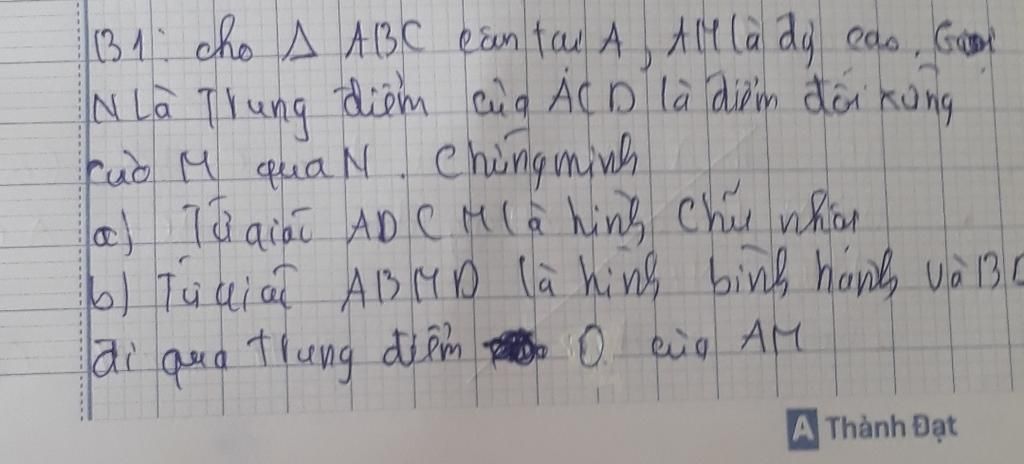 B1: cho Δ ABC cân tại A, AH là dg cao. Gọi
N là Trung điểm của AC D là điểm đối xứng
của H qua N. Chứng minh
a) Tứ giác ADCH là hình chữ nhật
b) Tứ giác ABHD là hình bình hành và B
đi qua trung điểm O của AH
A Thành Đạt